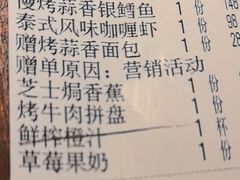 慢烤蒜香银鳕鱼 1份 148
泰式风味咖喱虾 1份 98
赠烤蒜香面包 1份
赠单原因：营销活动
芝士焗香蕉 1份
烤牛肉拼盘 1份
鲜榨橙汁 1杯
草莓果奶 1份